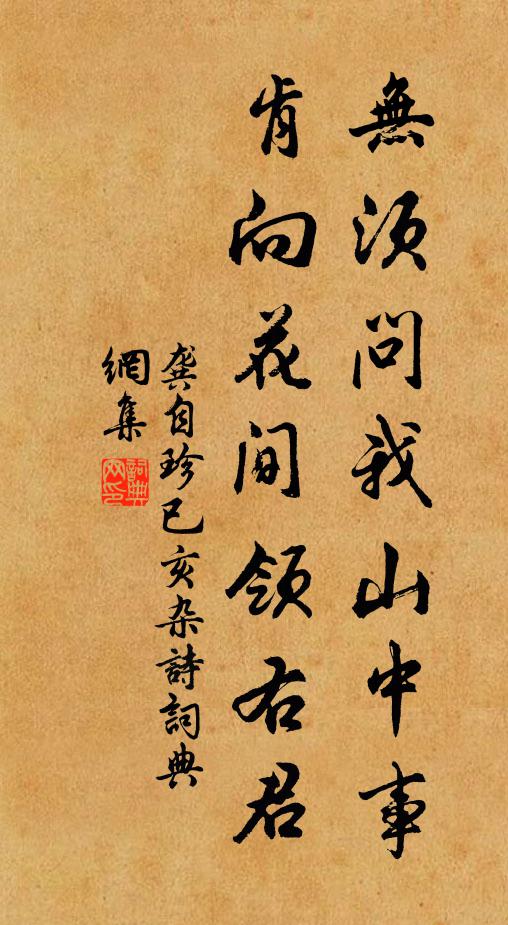 無須問我山中事
肯向花間領右君
龔自珍已亥杂詩詞典
網集
詞典
网印